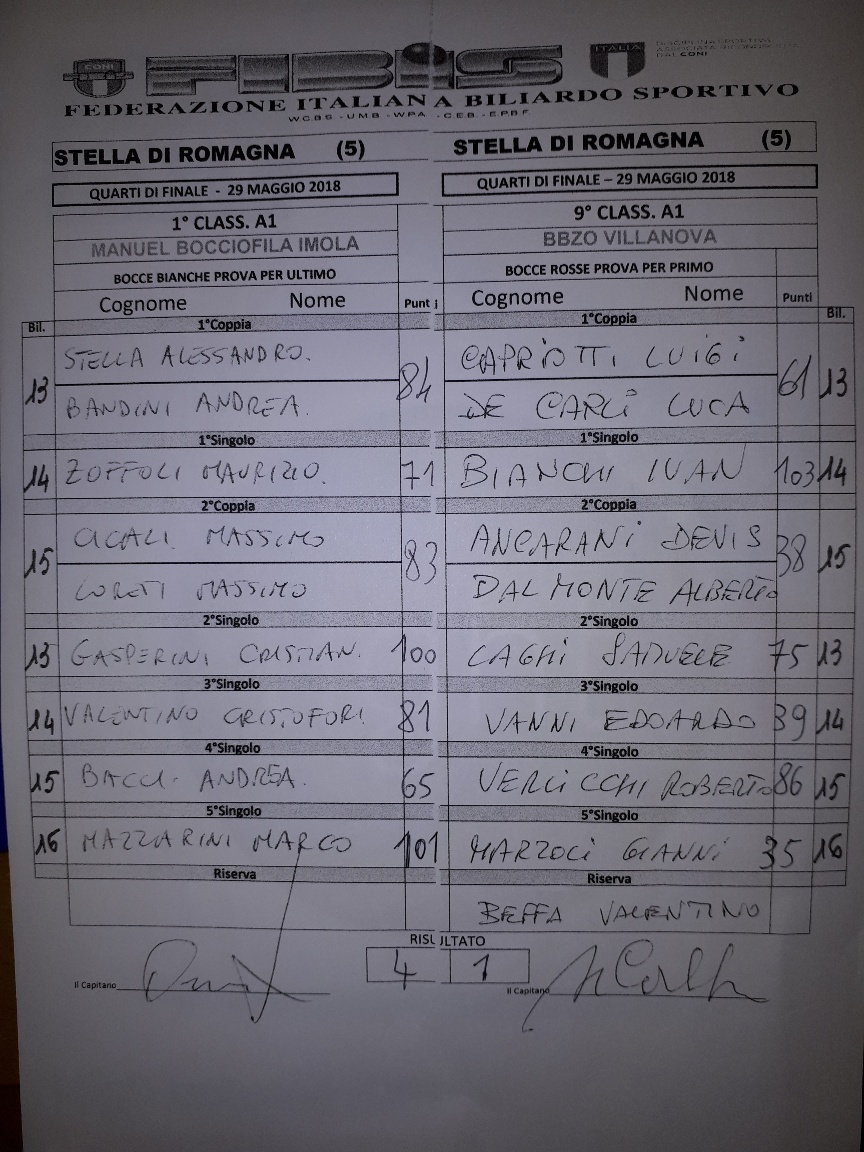 CONI FIBiS ITALIA DISCIPLINA SPORTIVA ASSOCIATA RICONOSCIUTA DAL CONI
FEDERAZIONE ITALIANA BILIARDO SPORTIVO
W.C.B.S - U.M.B - W.P.A - C.E.B - E.P.B.F
STELLA DI ROMAGNA (5) STELLA DI ROMAGNA (5)
QUARTI DI FINALE - 29 MAGGIO 2018 QUARTI DI FINALE – 29 MAGGIO 2018
1° CLASS. A1 9° CLASS. A1
MANUEL BOCCIOFILA IMOLA BBZO VILLANOVA
BOCCE BIANCHE PROVA PER ULTIMO BOCCE ROSSE PROVA PER PRIMO
Cognome Nome Punti Cognome Nome Punti
Bil. 1°Coppia 1°Coppia Bil.
STELLA ALESSANDRO. CAPRIOTTI LUIGI
13 84 61 13
BANDINI ANDREA. DE CARLI LUCA
1°Singolo 1°Singolo
14 ZOFFOLI MAURIZIO. 71 BIANCHI IVAN 103 14
2°Coppia 2°Coppia
CICALI MASSIMO ANCARANI DEVIS
15 83 38 15
LORETI MASSIMO DAL MONTE ALBERTO
2°Singolo 2°Singolo
13 GASPERINI CRISTIAN. 100 LAGHI SAMUELE 75 13
3°Singolo 3°Singolo
14 VALENTINO CRISTOFORI 81 VANNI EDOARDO 39 14
4°Singolo 4°Singolo
15 BACCI ANDREA. 65 VERLICCHI ROBERTO 86 15
5°Singolo 5°Singolo
16 MAZZARINI MARCO 101 MARZOCI GIANNI 35 16
Riserva Riserva
BEFFA VALENTINO
RISULTATO
4 1
Il Capitano Il Capitano